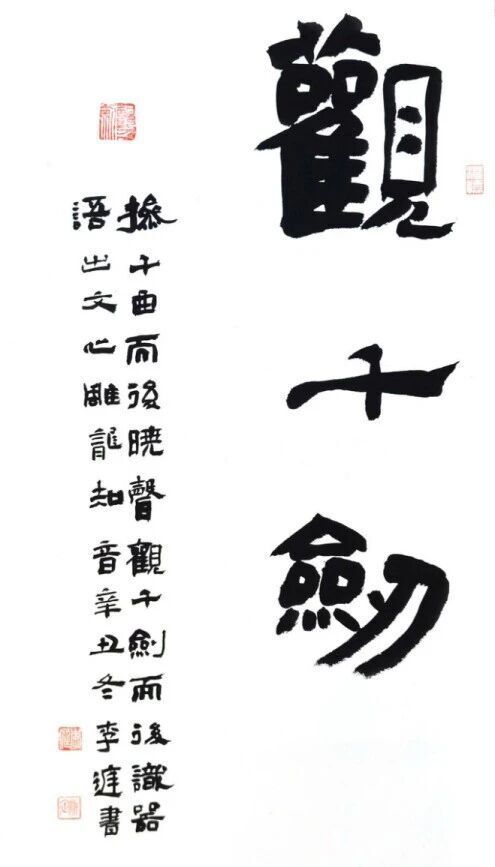 觀千劒
操千曲而後曉聲觀千劍而後識器
語出文心雕龍知音辛丑冬李進書